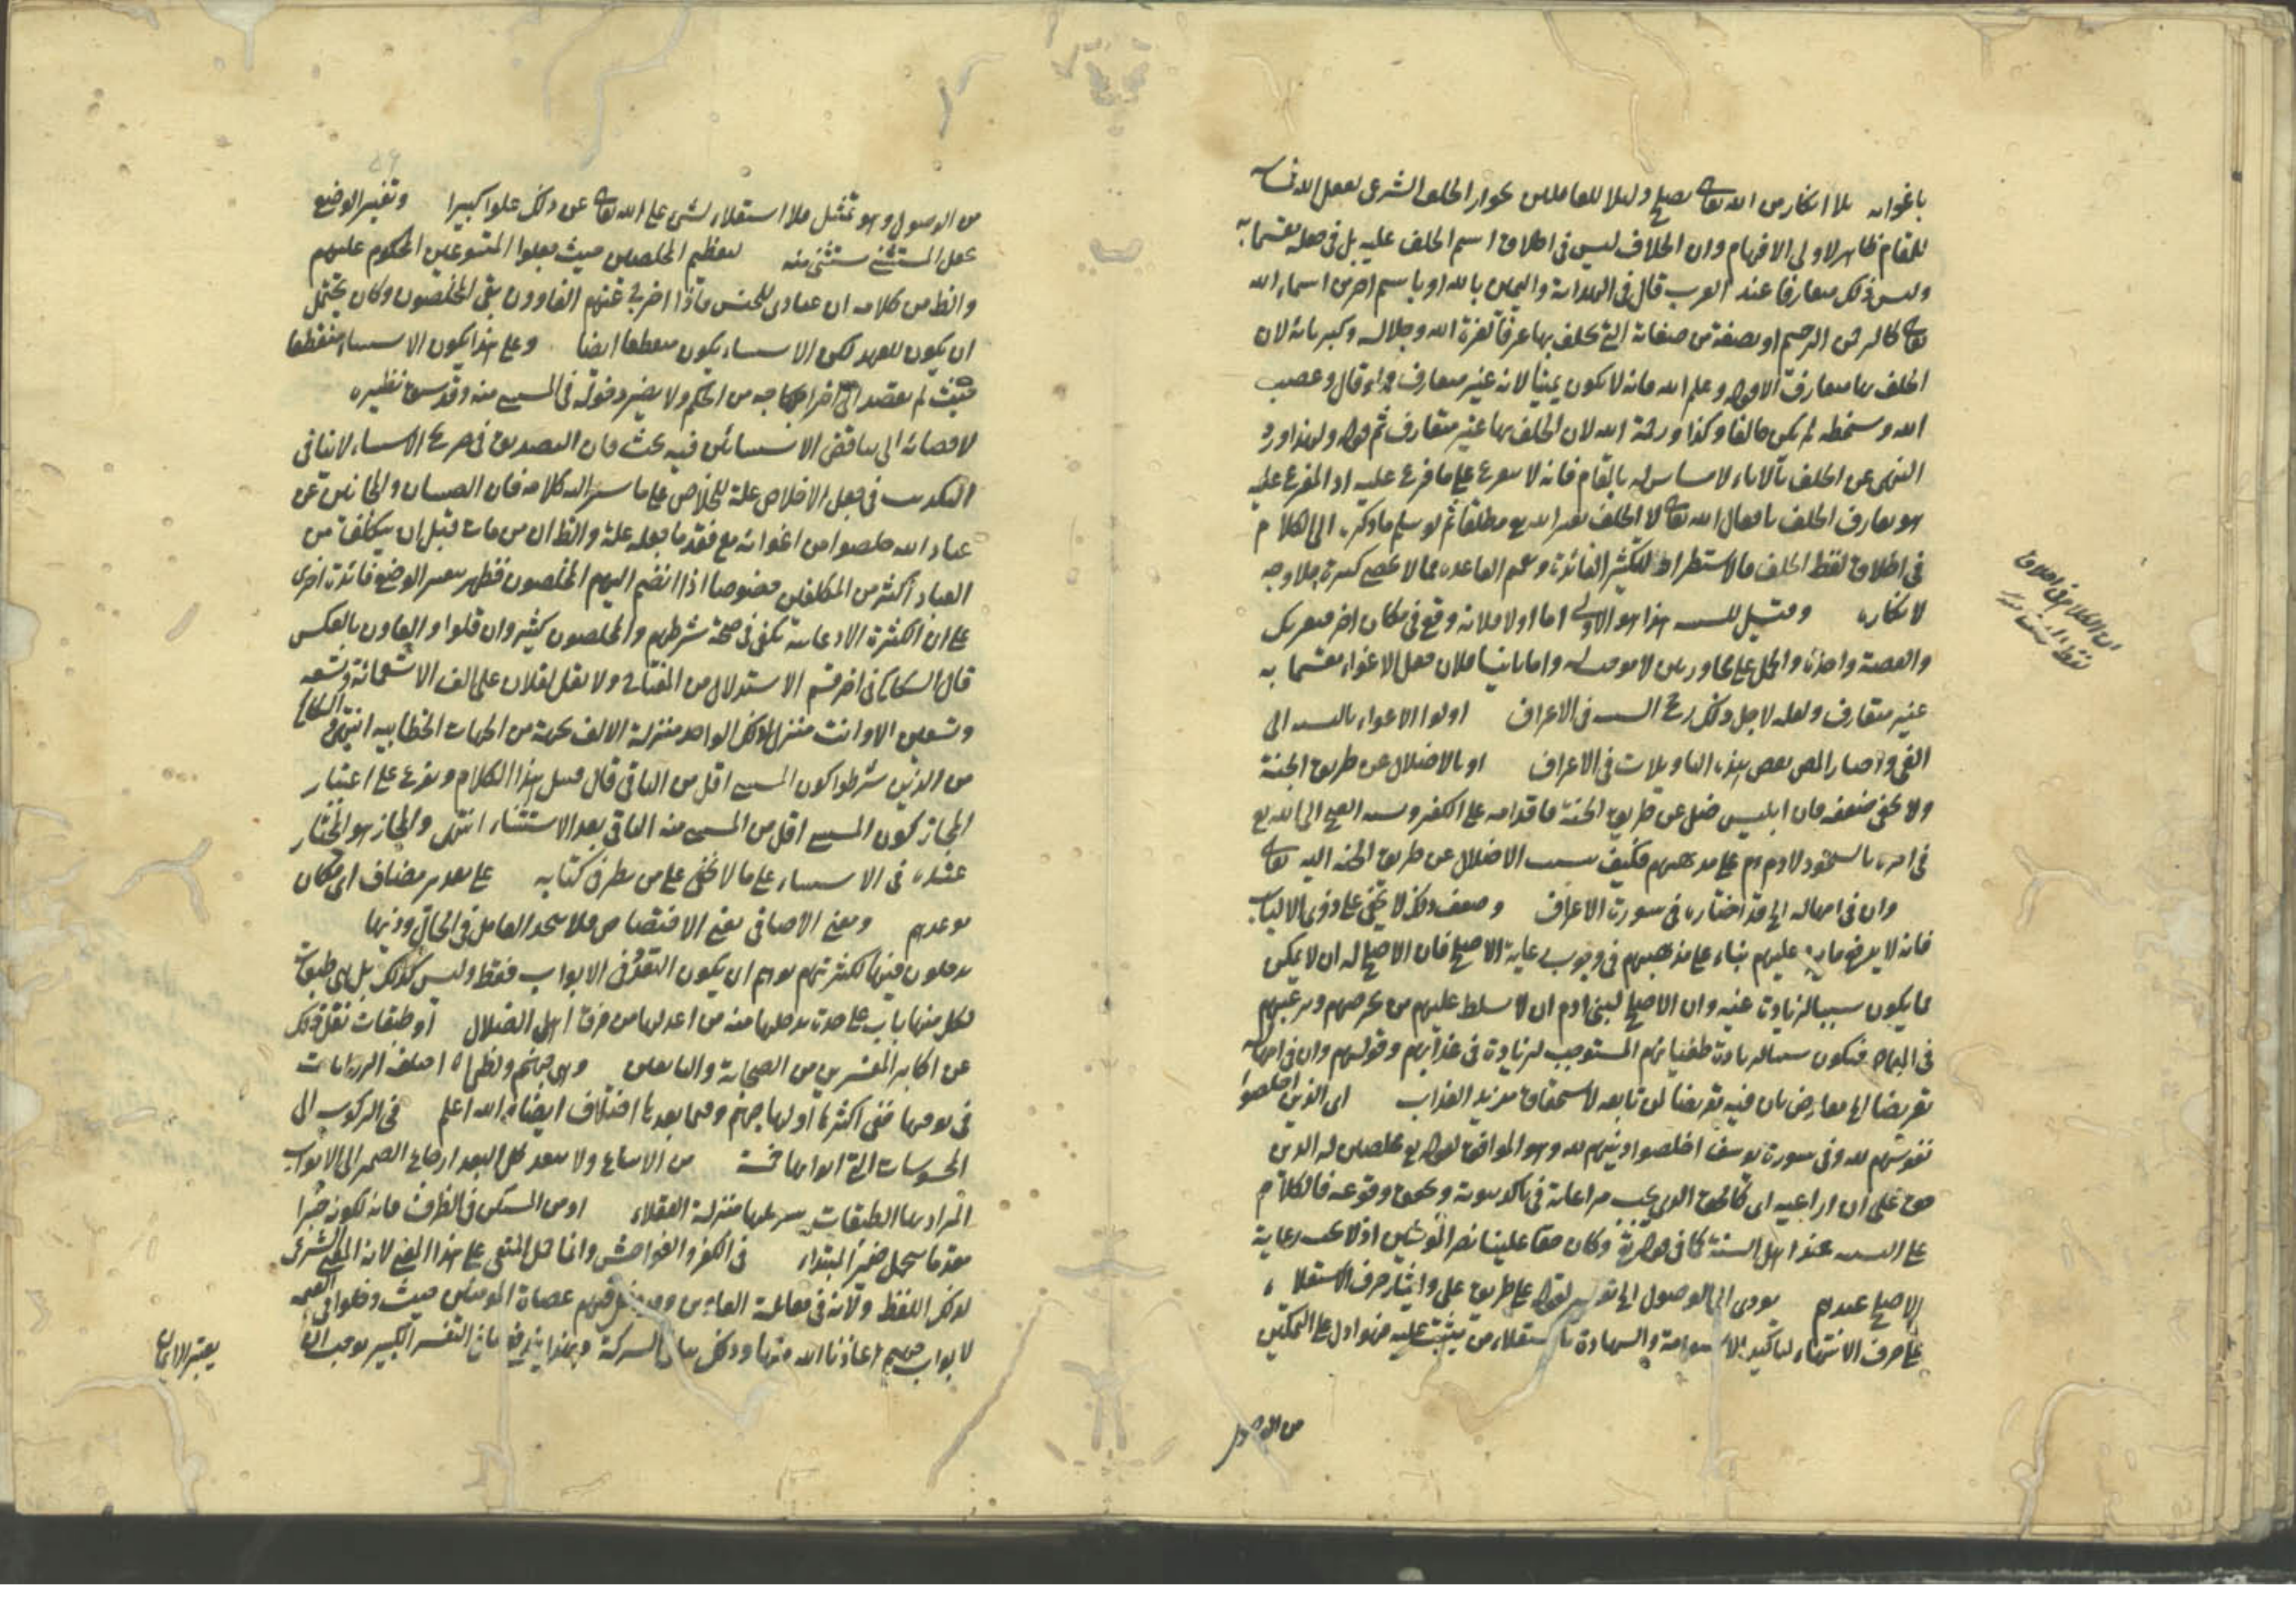 باغوائه بلا انكار من الله تعالى يصلح دليلا للقائلين بجواز الحلف الشرعى بفعل الله تعالى
للمقام ظاهر لاولى الافهام وان الخلاف ليس فى اطلاق اسم الحلف عليه بل فى جعله مقسما به
وليس ذلك متعارفا عند العرب قال فى الهداية واليمين بالله او باسم اخر من اسماء الله
تعالى كالرحمن الرحيم او بصفة من صفاته التى يحلف بها عرفا كعزة الله وجلاله وكبريائه لان
الحلف بها متعارف الا قوله وعلم الله فانه لا يكون يمينا لانه غير متعارف ولو قال وغضب
الله وسخطه لم يكن حالفا وكذا ورحمة الله لان الحلف بها غير متعارف ثم قوله ولهذا ورد
النهى عن الحلف بالاباء لا مساس له بالمقام فانه لا يتفرع على ما فرع عليه اذ المفرع عليه
هو تعارف الحلف بافعال الله تعالى لا الحلف بغير الله مطلقا ثم لو سلم ما ذكره الى الكلام
فى اطلاق لفظ الحلف فالاستطراد لتكثير الفائدة وتعميم القاعدة مما لا يحصى كثرة فلا وجه
لانكاره وقيل للسببية هذا هو الاولى اما اولا فلانه وقع فى مكان اخر فبعزتك
والقصة واحدة والحمل على محاورتين لا موجب له واما ثانيا فلان جعل الاغواء مقسما به
غير متعارف ولعله لاجل ذلك رجح السببية فى الاعراف اولوا الاغواء بالنسبة الى
الغى واختار المص بعض هذه التاويلات فى الاعراف او بالاضلال عن طريق الجنة
ولا يخفى ضعفه فان ابليس ضل عن طريق الجنة باقدامه على الكفر ونسبة القبيح الى الله تع
فى امره بالسجود لادم عم على مذهبهم فكيف ينسب الاضلال عن طريق الجنة اليه تعالى
وان فى امهاله الخ قد اختاره فى سورة الاعراف وضعف ذلك لا يخفى على ذوى الالباب
فانه لا يدفع ما يرد عليهم بناء على مذهبهم فى وجوب رعاية الاصلح فان الاصلح له ان لا يمكن
مما يكون سببا لزيادة غيه وان الاصلح لبنى ادم ان لا يسلط عليهم من يحرضهم ويرغبهم
فى القبائح فيكون سببا لزيادة طغيانهم المستوجب لزيادة فى عذابهم وقولهم وان فى امهاله
تعريضا الخ يعارض بان فيه تعريضا لمن تابعه لاستحقاق مزيد العذاب اى الذين اخلصوا
نفوسهم لله وفى سورة يوسف اخلصوا دينهم لله وهو الموافق لقوله تع مخلصين له الدين
حق على ان اراعيه اى كالحق الذى يجب مراعاته فى تاكد ثبوته وتحقق وقوعه فالكلام
على التشبيه عند اهل السنة كما فى قوله تع وكان حقا علينا نصر المؤمنين اذ لا يجب رعاية
الاصلح عندهم يؤدى الى الوصول الخ تفسير لقوله على طريق على وايثار حرف الاستعلاء
على حرف الانتهاء لتاكيد الاستقامة والشهادة باستعلاء من يثبت عليه فهو ادل على التمكين
من الوصول
ان الكلام فى اطلاق
من الوصول وهو تمثيل فلا استعلاء لشئ على الله تعالى عن ذلك علوا كبيرا وتغيير الوضع
جعل المستثنى مستثنى منه لتعظيم المخلصين حيث جعلوا المتبوعين المحكوم عليهم
والظ من كلامه ان عبادى للجنس فاذا اخرج عنهم الغاوون بقى المخلصون وكان يحتمل
ان يكون للعهد لكن الاستثناء يكون منقطعا ايضا وعلى هذا يكون الاستثناء منقطعا
حيث لم يقصد الخ اخراجه من الحكم ولا يضر دخوله فى المستثنى منه وقد سبق نظيره
لافضائه الى تناقض الاستثنائين فيه بحث فان التصديق فى صريح الاستثناء لا ينافى
التكذيب فى جعل الاخلاص علة للخلاص على ما يشير اليه كلامه فان الصبيان والمجانين من
عباد الله خلصوا من اغوائه مع فقد ما جعله علة والظ ان من مات قبل ان يكلف من
العباد اكثر من المكلفين خصوصا اذا انضم اليهم المخلصون فظهر لتغيير الوضع فائدة اخرى
على ان الكثرة الادعائية تكفى فى صحة شرطهم والمخلصون كثير وان قلوا والغاوون بالعكس
قال السكاكى فى اخر قسم الاستدلال من المفتاح ولا تقل لفلان على الف الا تسعمائة وتسعة
وتسعين الا وانت منزل لذلك الواحد منزلة الالف بجهة من الجهات الخطابية انتهى والسكاكى
من الذين شرطوا كون المستثنى اقل من الباقى قال قبيل هذا الكلام ويفرع على اعتبار
المجاز كون المستثنى اقل من المستثنى منه الباقى بعد الاستثناء انتهى والمجاز هو المختار
عنده فى الاستثناء على ما لا يخفى على من نظر فى كتابه على تقدير مضاف اى مكان
موعدهم ومعنى الاضافى معنى الاختصاص فلا يتحد العامل فى الحال وذيها
يدخلون فيها لكثرتهم يوهم ان يكون التعدد فى الابواب فقط وليس كذلك بل هى طبقات
لكل منها باب على حدة يدخلها منه من اعد لها من فرق اهل الضلال او طبقات نقل ذلك
عن اكابر المفسرين من الصحابة والتابعين وهى جهنم ولظى الخ اختلف الروايات
فى ترتيبها ففى اكثرها اولها جهنم وفيما بعدها اختلاف ايضا والله اعلم فى الركون الى
المحسوسات التى ابوابها خمسة من الاتباع ولا يبعد كل البعد ارجاع الضمير الى الابواب
المراد بها الطبقات بتنزيلها منزلة العقلاء او من المستكن فى الظرف فانه لكونه خبرا
مقدما يتحمل ضمير المبتداء فى الكفر والفواحش وانما حمل المتقى على هذا المعنى لانه المعنى الشرعى
لذلك اللفظ ولانه فى مقابلة الغاوين ومنهم عصاة المؤمنين حيث دخلوا فى القسمة
لابواب جهنم اعاذنا الله منها وذلك بيان الشركة وبهذا يندفع ما فى التفسير الكبير موجب ان لا
يعتبر الايمان